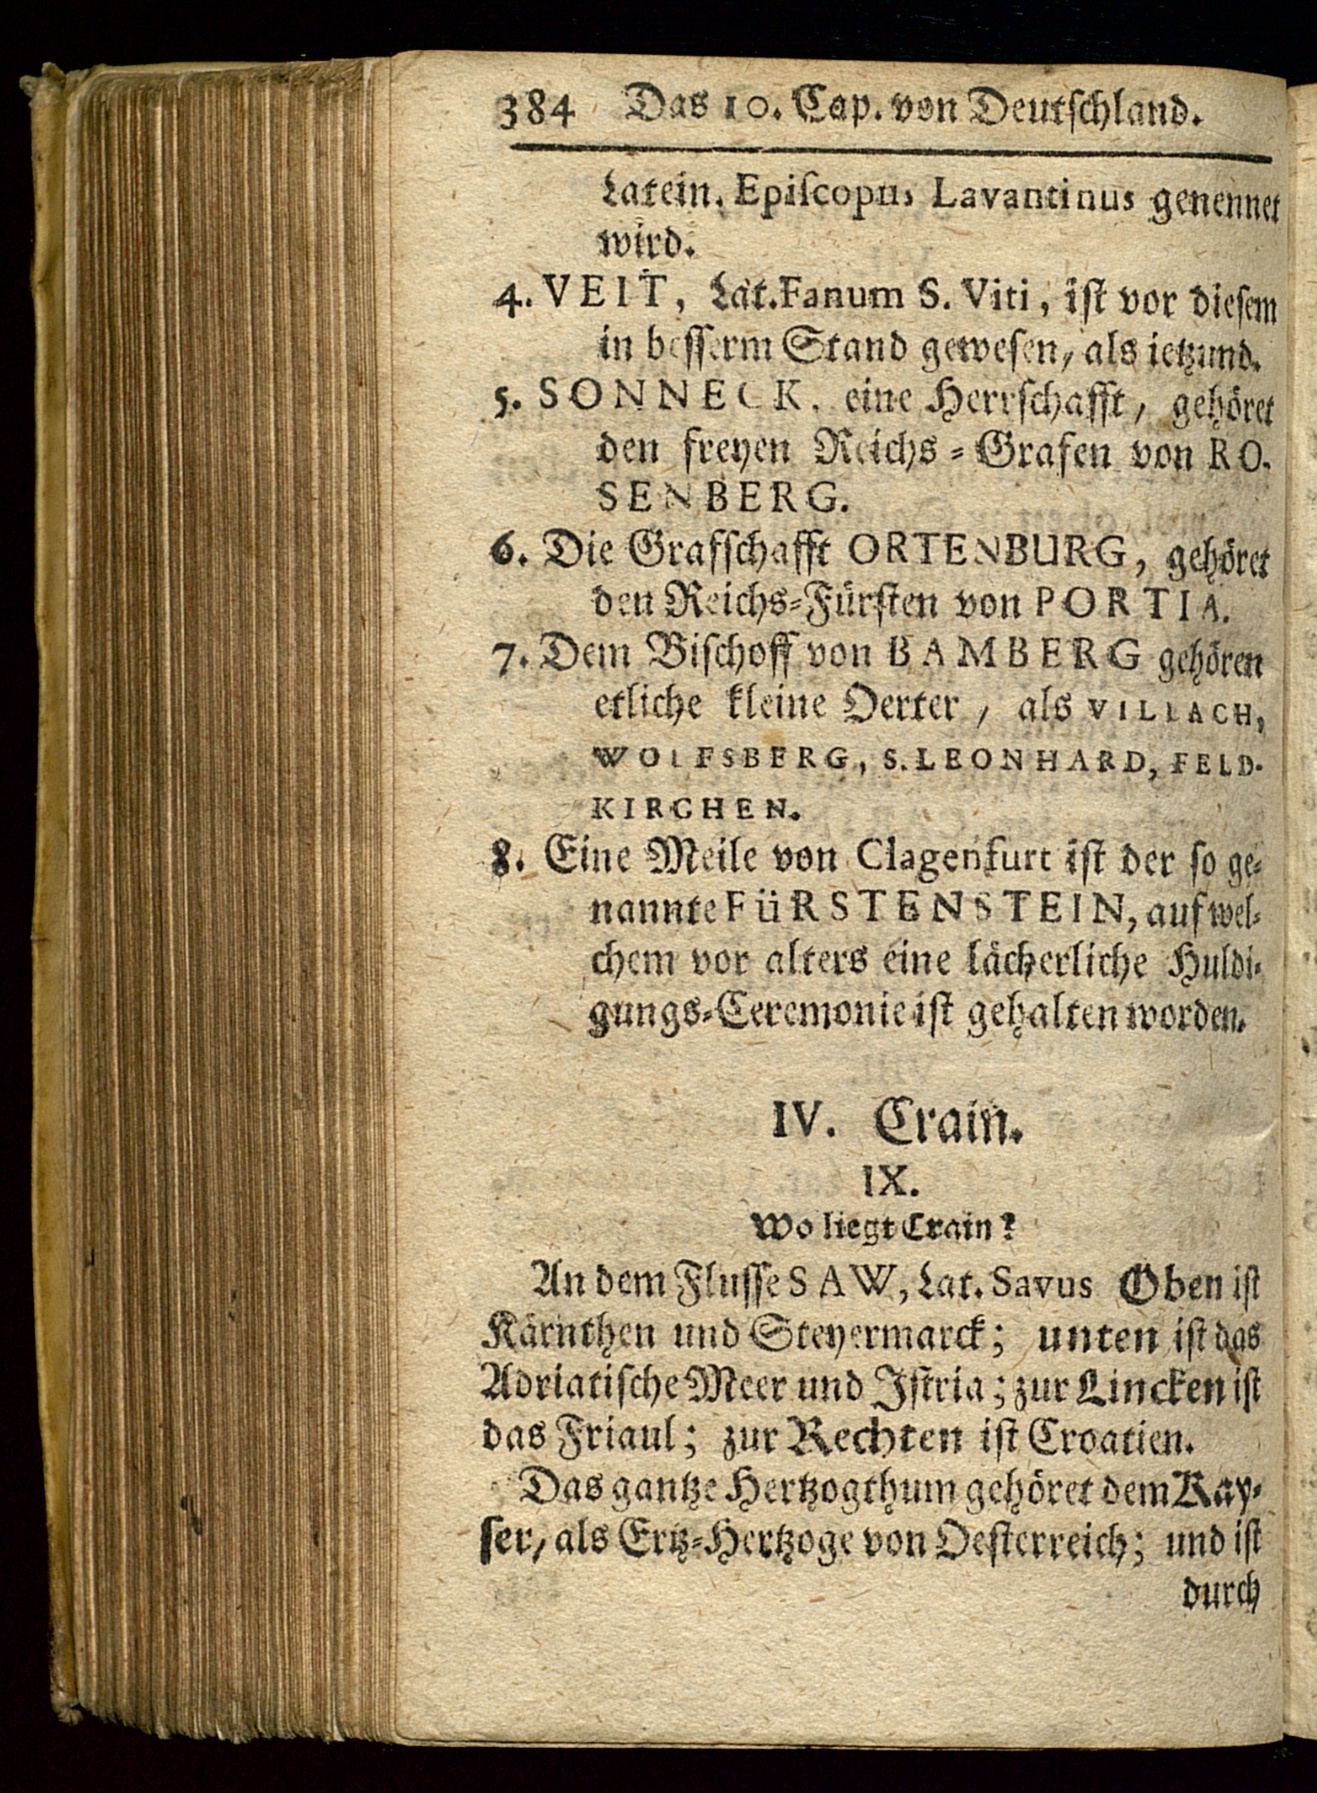 384 Das 10. Cap. von Deutschland.
Latein. Episcopus Lavantinus genennet
wird.
4. VEIT, Lat. Fanum S. Viti, ist vor diesem
in besserm Stand gewesen, als ietzund.
5. SONNECK, eine Herrschafft, gehöret
den freyen Reichs-Grafen von RO-
SENBERG.
6. Die Grafschafft ORTENBURG, gehöret
den Reichs-Fürsten von PORTIA.
7. Dem Bischoff von BAMBERG gehören
etliche kleine Oerter, als VILLACH,
WOLFSBERG, S. LEONHARD, FELD-
KIRCHEN.
8. Eine Meile von Clagenfurt ist der so ge-
nannte FüRSTENSTEIN, auf wel-
chem vor alters eine lächerliche Huldi-
gungs-Ceremonie ist gehalten worden.
IV. Crain.
IX.
Wo liegt Crain?
An dem Flusse SAW, Lat. Savus Oben ist
Kärnthen und Steyermarck; unten ist das
Adriatische Meer und Istria; zur Lincken ist
das Friaul; zur Rechten ist Croatien.
Das gantze Hertzogthum gehöret dem Kay-
ser, als Ertz-Hertzoge von Oesterreich; und ist
durch